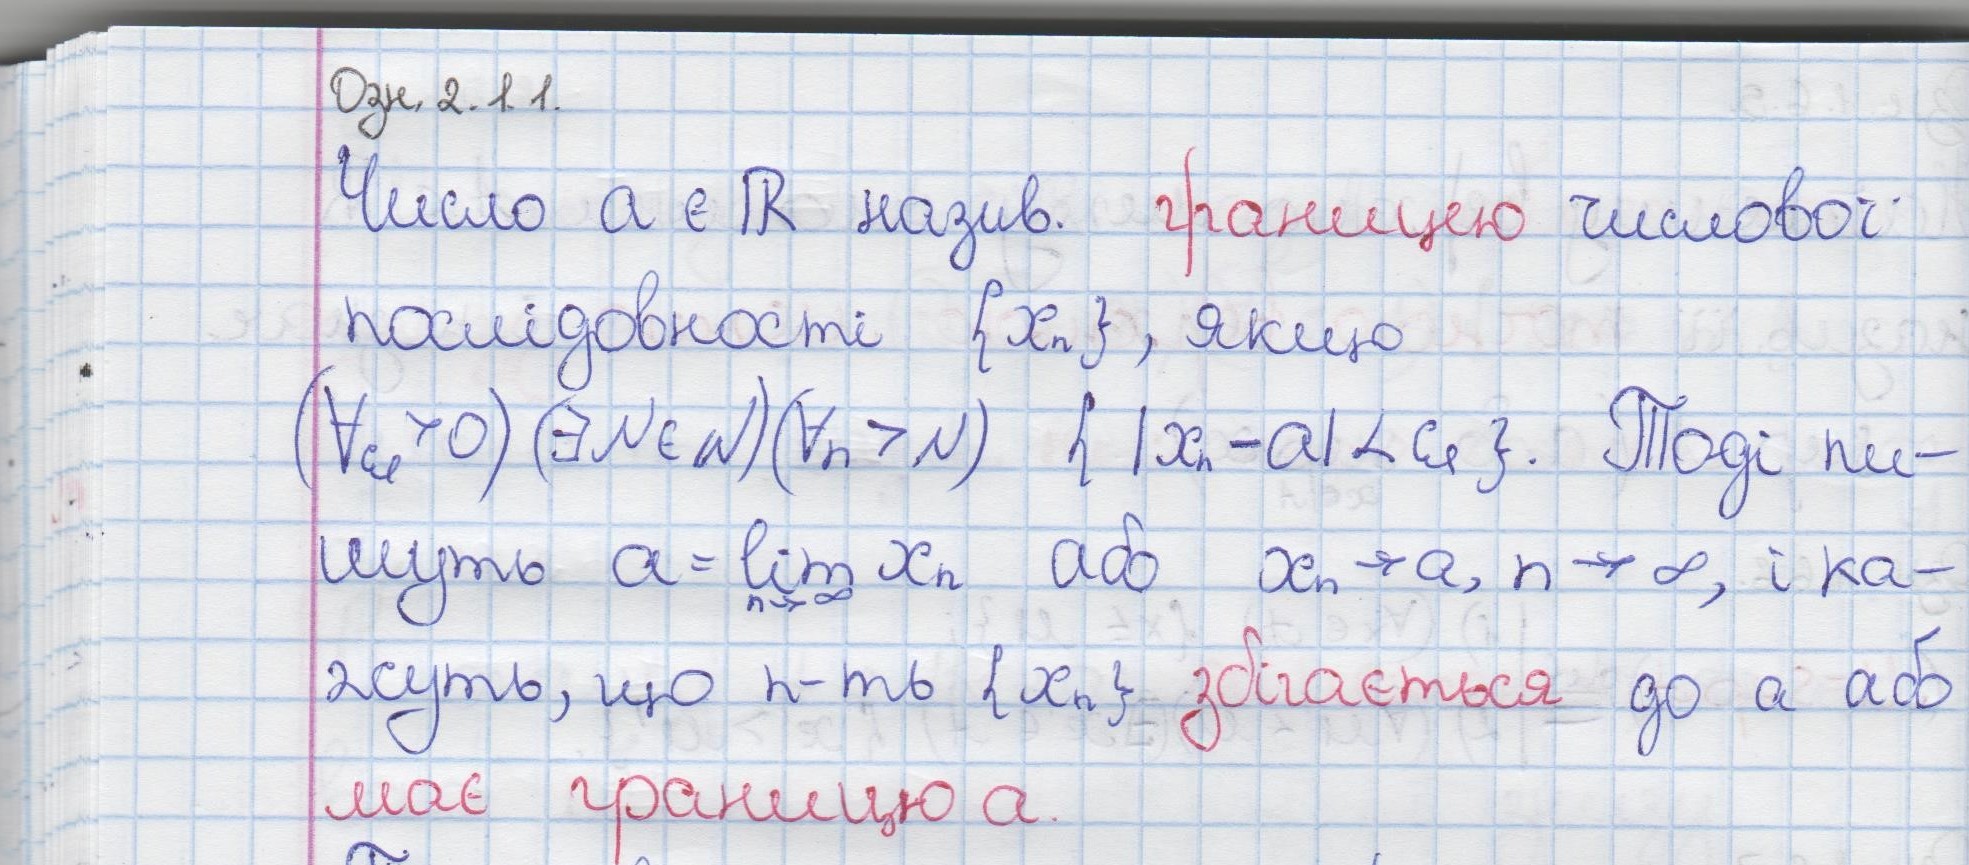 Озн. 2.1.1.
Число a ∈ ℝ назив. границею числової
послідовності {xₙ}, якщо
(∀ε>0) (∃N∈ℕ)(∀n>N) { |xₙ-a|<ε }. Тоді пи-
шуть a = lim xₙ або xₙ→a, n→∞, і ка-
n→∞
жуть, що п-ть {xₙ} збігається до a або
має границю a.